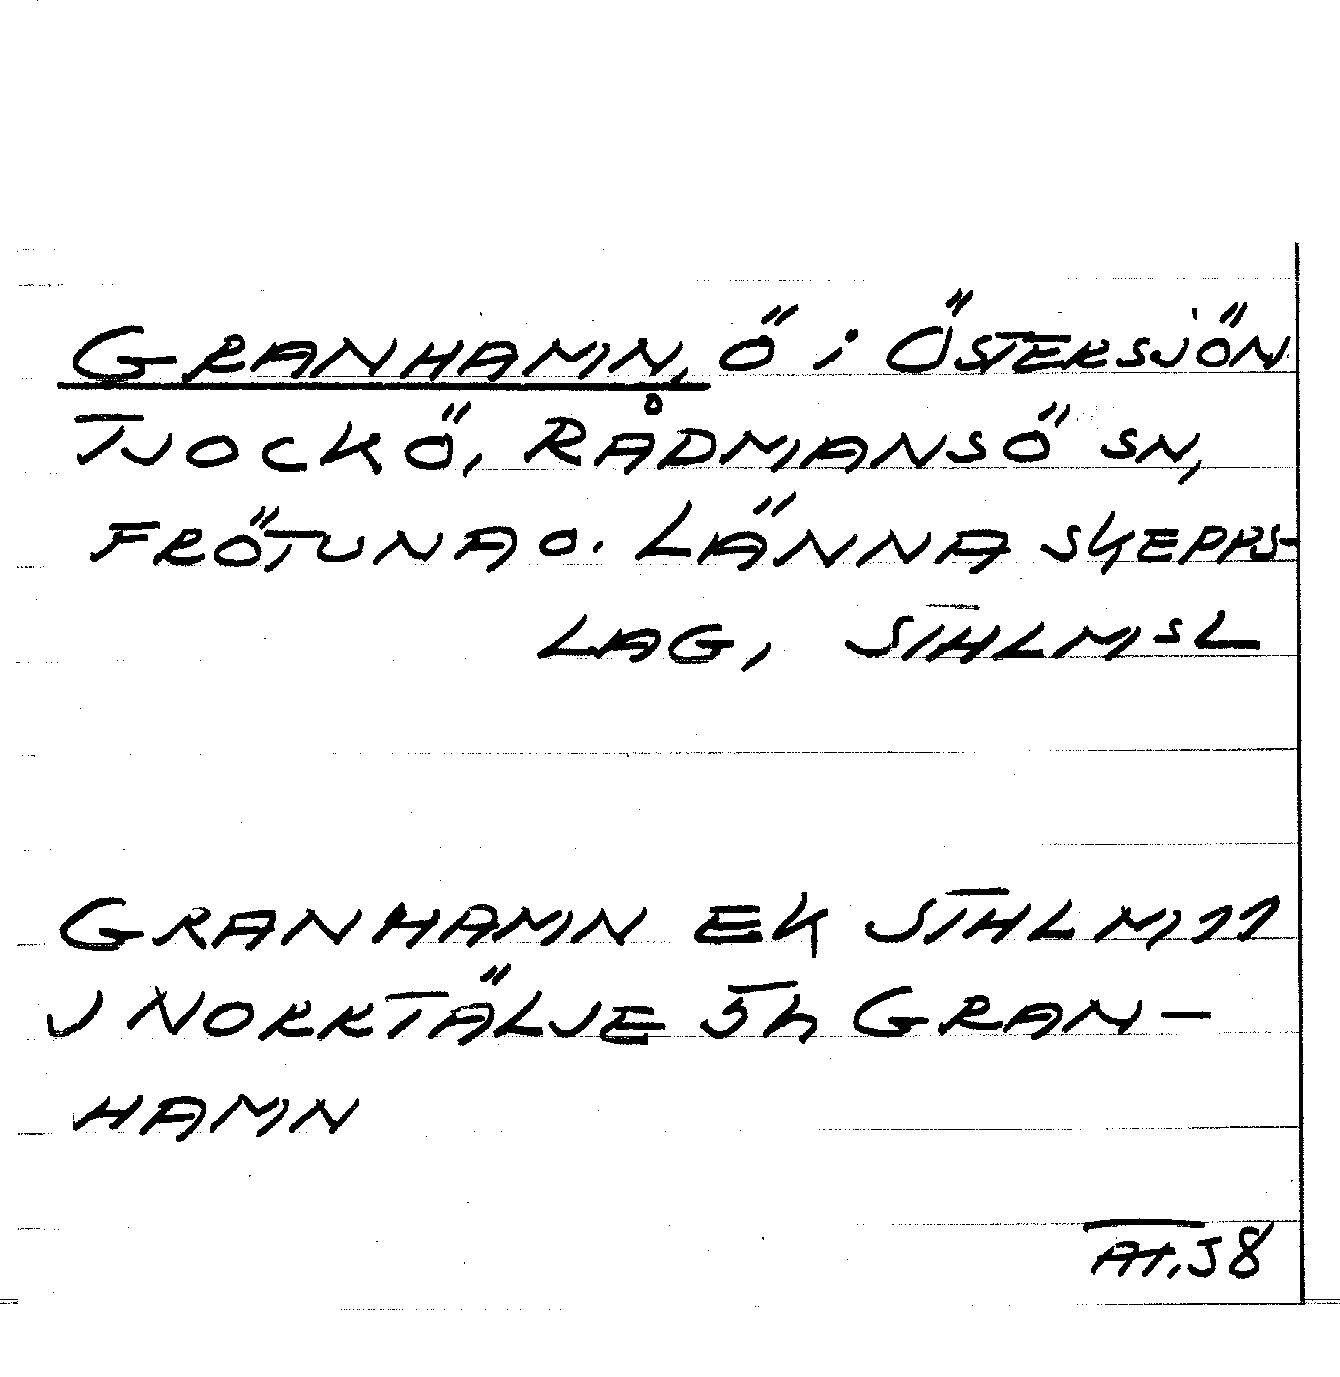 GRANHAMN, Ö i ÖSTERSJÖN
TJOCKÖ, RÅDMANSÖ SN,
FRÖTUNA O. LÄNNA SKEPPS-
LAG, STHLMSL
GRANHAMN EK STHLM 11
J NORRTÄLJE 5h GRAN-
HAMN
AT.58